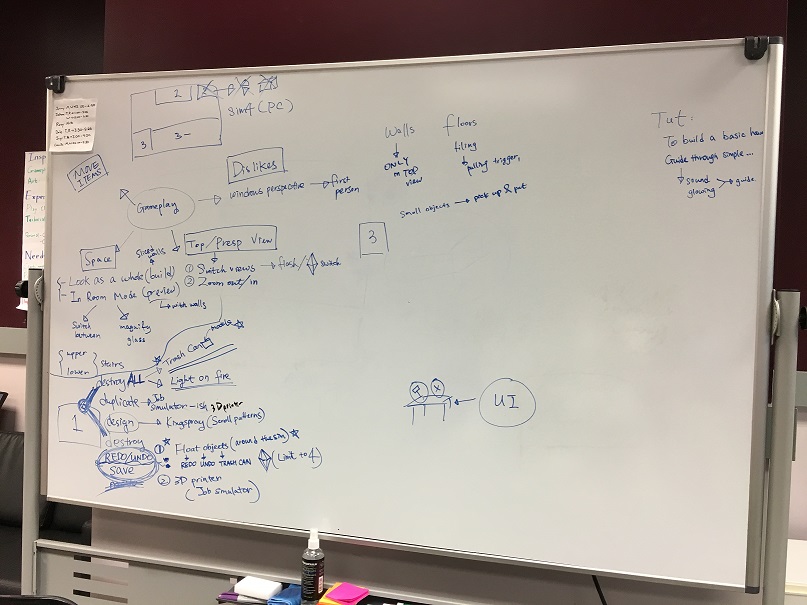 2
3
3-
sim4 (PC)
MOVE ITEMS
Gameplay
Dislikes
windows perspective → first person
Walls
↓
ONLY in TOP view
floors
tiling
↓
pulling triggers
small objects → pick up & put
3
Tut:
To build a basic
Guide through simple...
↓ sound
glowing → guide
Space
walls
Look as a whole (build)
In Room Mode (preview)
↳ with walls
Switch between
magnify glass
Top/Presp View
① Switch views → flash/ switch
② Zoom out/in
upper
lower
stairs
Trash Can
destroy ALL → Light on fire
duplicate → Job simulator-ish 3D printer
1
design → Kingspray (Scroll patterns)
destroy
REDO/UNDO
save
① Float objects (around the sim)
REDO UNDO TRASH CAN (Limit to 4)
② 3D printer
(Job simulator)
UI
Insp
Art
Need